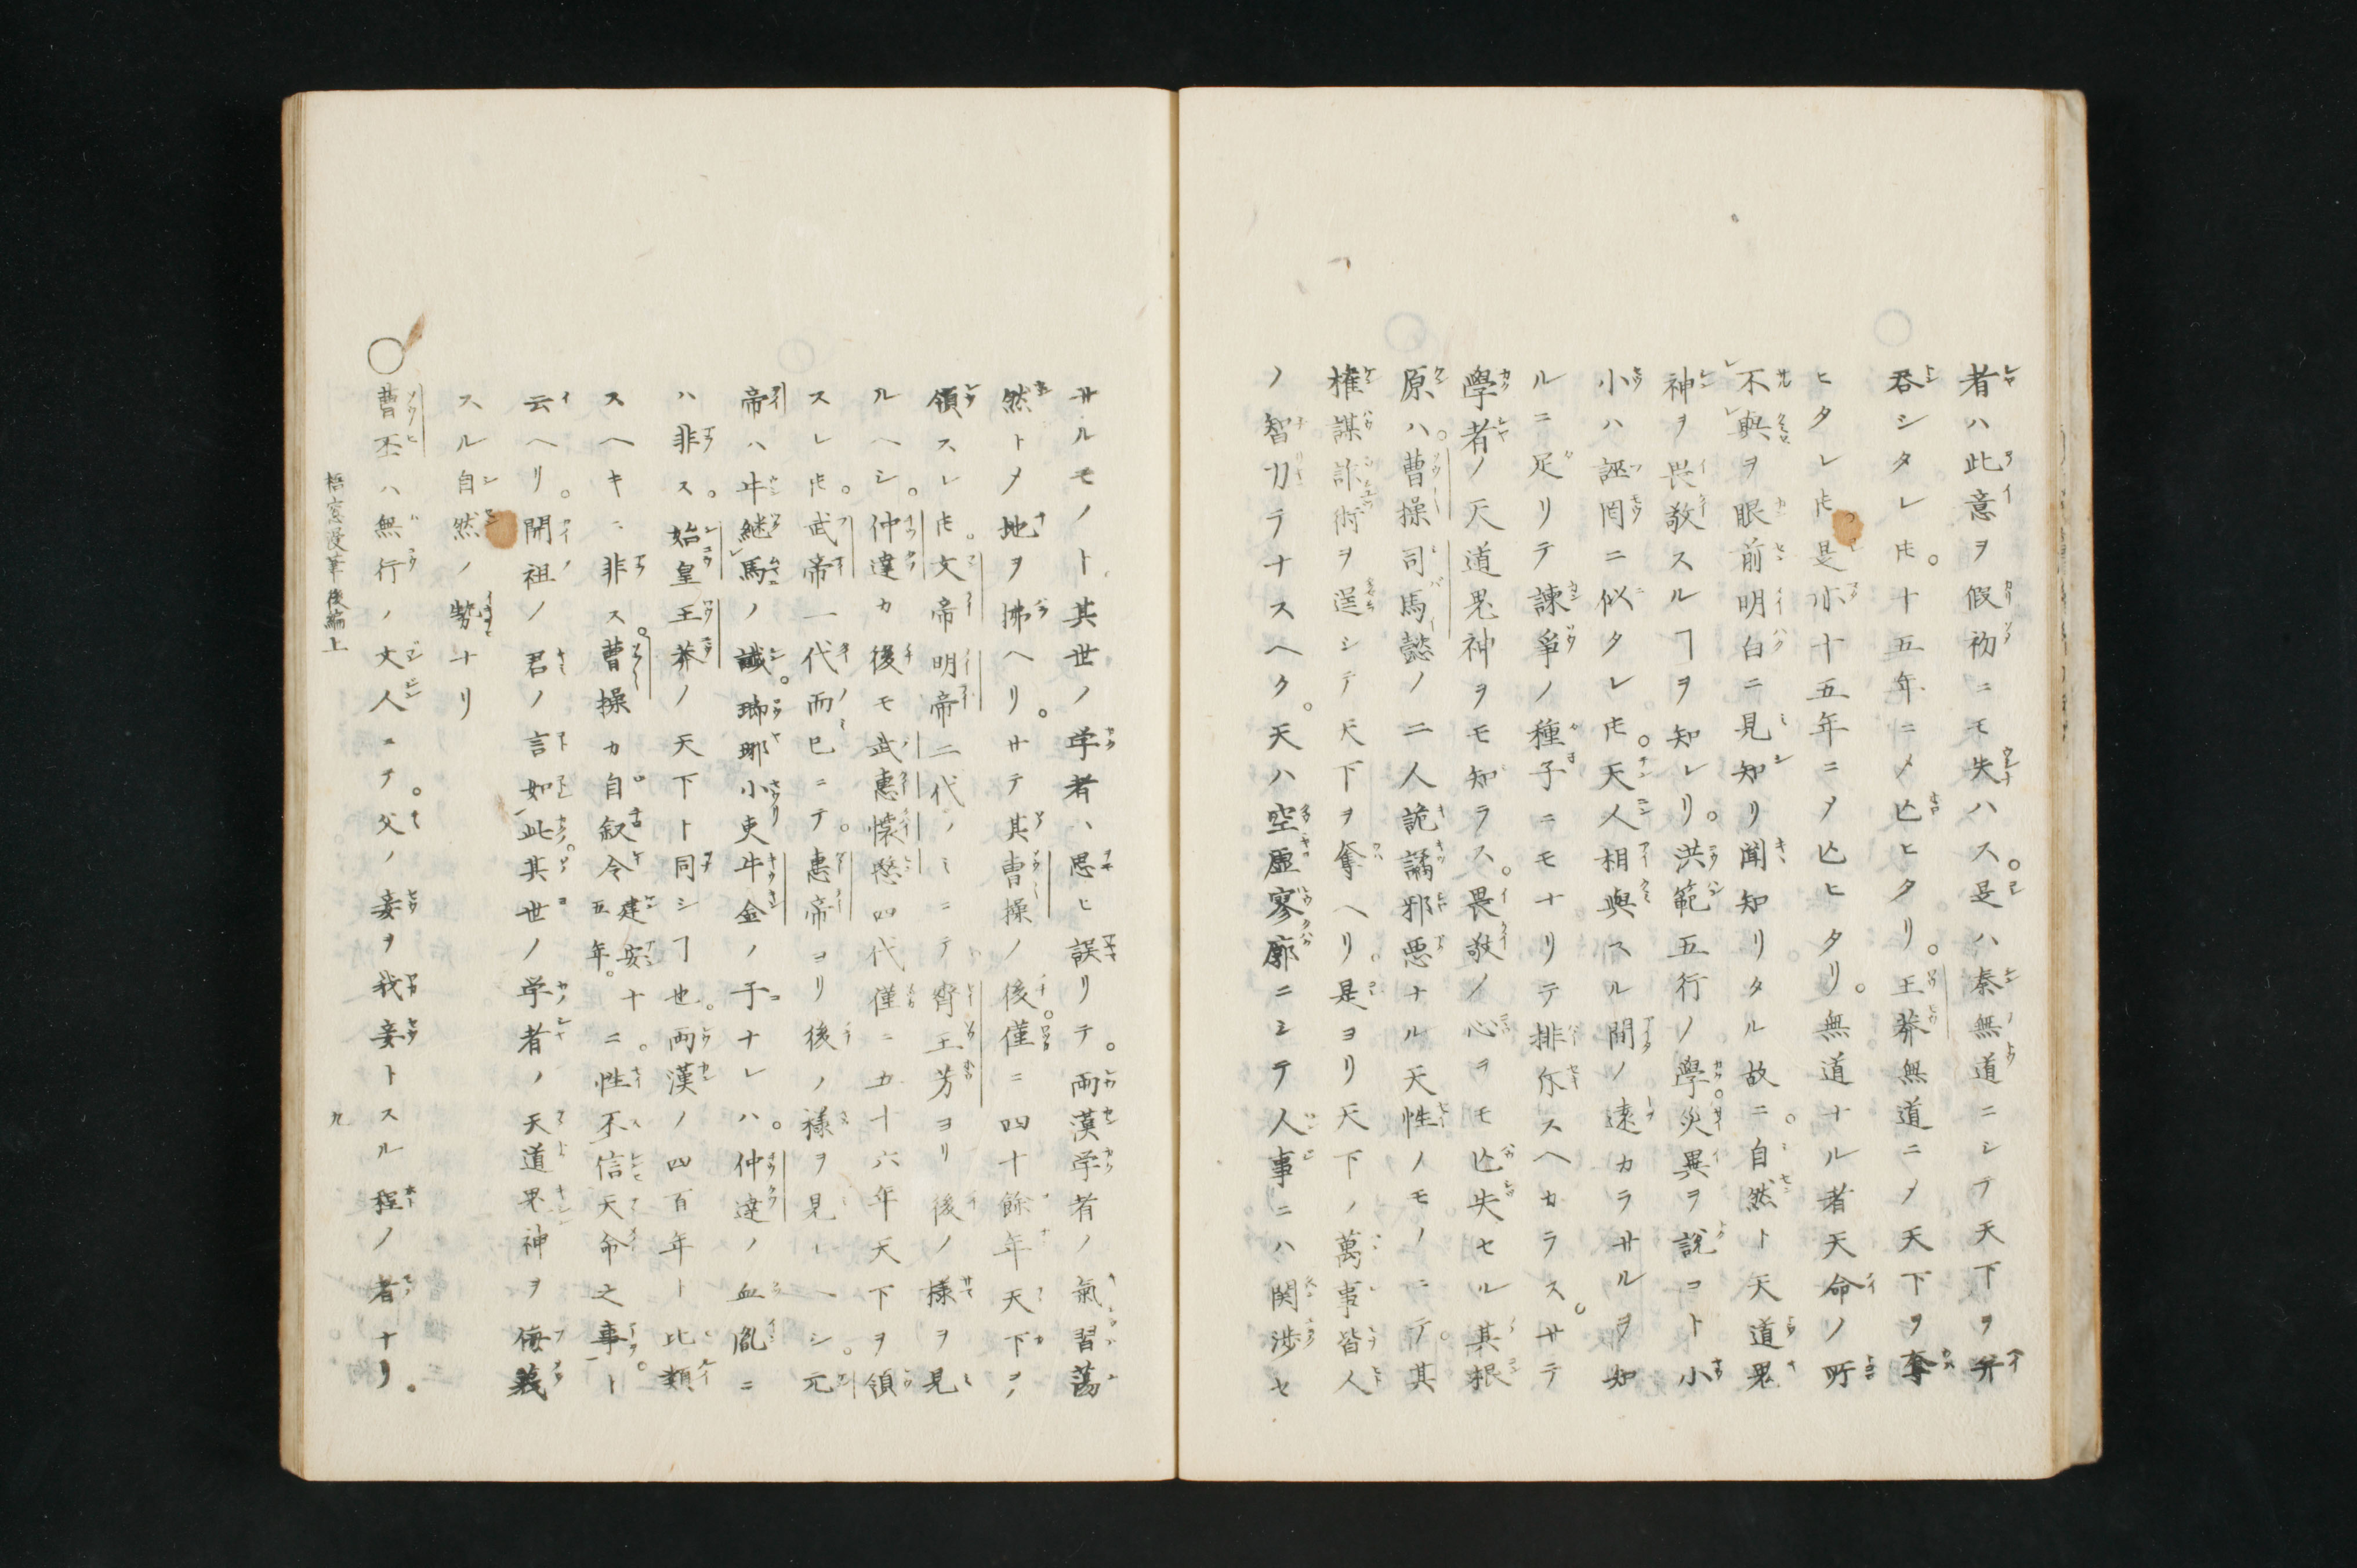 者ハ此意ヲ假初ニモ失ハス。是ハ秦無道ニシテ天下ヲ幷
呑シタレ𪜈。十五年ニメ亡ヒタリ。王莽無道ニメ天下ヲ奪
ヒタレ𪜈是亦十五年ニメ亡ヒタリ。無道ナル者天命ノ所
不與ヲ眼前明白ニ見知リ聞知リタル故ニ。自然ト天道鬼
神ヲ畏敬スルヿヲ知レリ。洪範五行ノ學。災異ヲ說コト小
小ハ誣罔ニ似タレ𪜈。天人相與スル間ノ遠カラサルヲ知
ルニ足リテ諫爭ノ種子ニモナリテ排斥スヘカラス。サテ
學者ノ天道鬼神ヲモ知ラス。畏敬ノ心ヲモ亡失セル其根
原ハ。曹操司馬懿ノ二人詭譎邪惡ナル天性ノモノニテ。其
權謀詐術ヲ逞シテ天下ヲ奪ヘリ。是ヨリ天下ノ萬事皆人
ノ智力ヲテナスヘク。天ハ空虛寥廓ニシテ人事ニハ関涉セ
サルモノト其世ノ学者ハ思ヒ誤リテ。兩漢学者ノ氣習蕩
然トメ地ヲ拂ヘリ。サテ其曹操ノ後。僅ニ四十餘年天下ヲ
領スレ𪜈。文帝明帝二代ノミニテ齊王芳ヨリ後ノ樣ヲ見
ルヘシ。仲達カ後モ武惠懷愍四代僅ニ五十六年天下ヲ領
スレ𪜈。武帝一代而已ニテ。惠帝ヨリ後ノ樣ヲ見ルヘシ。元
帝ハ牛継馬ノ讖。瑯琊小吏牛金ノ子ナレハ。仲達ノ血胤ニ
ハ非ス。始皇王莽ノ天下ト同シヿ也。両漢ノ四百年ト比類
スヘキニ非ス。曹操カ自叙令建安十五年。ニ。性不信天命之事。ト
云ヘリ。開祖ノ君ノ言如此。其世ノ学者ノ天道鬼神ヲ侮蔑
スル自然ノ勢ナリ
○曹丕ハ無行ノ文人ニテ。父ノ妾ヲ我妾トスル程ノ者ナリ。
梧窓漫筆後編上 九